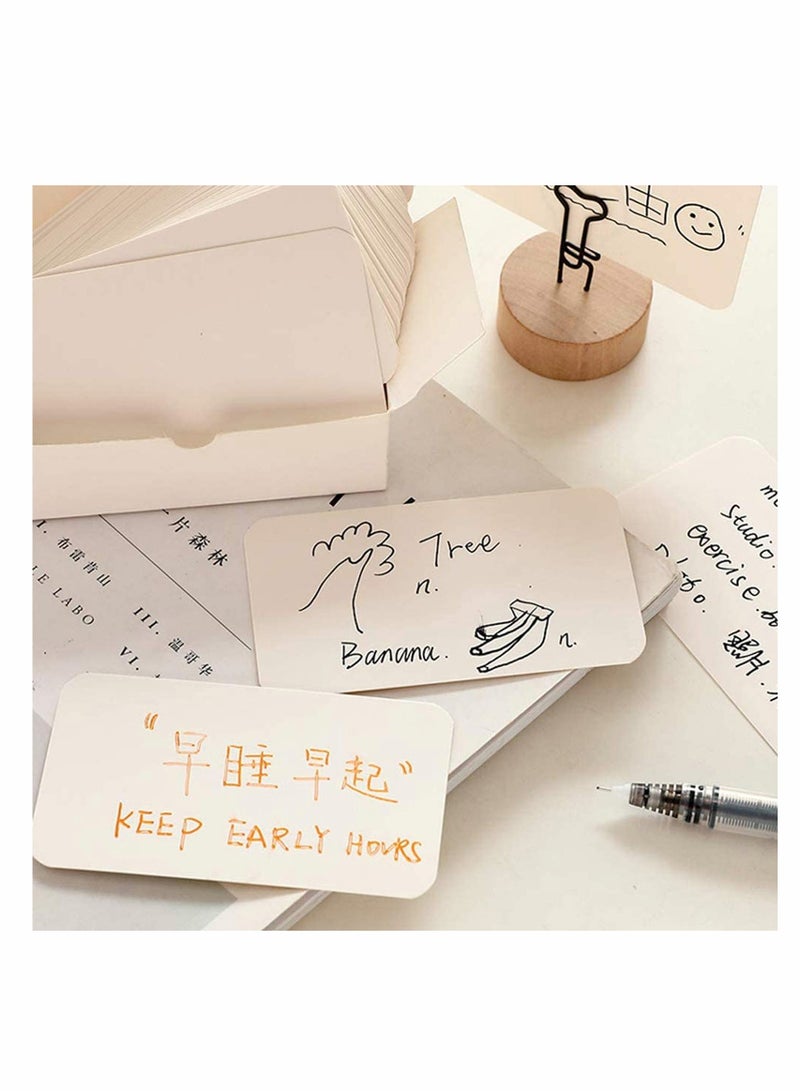 片森林
I. 布雷肯山
LE LABO
III. 温哥华
VI.
Tree
n.
Banana.
n.
studio.
exercise
"早睡早起"
KEEP EARLY HOURS